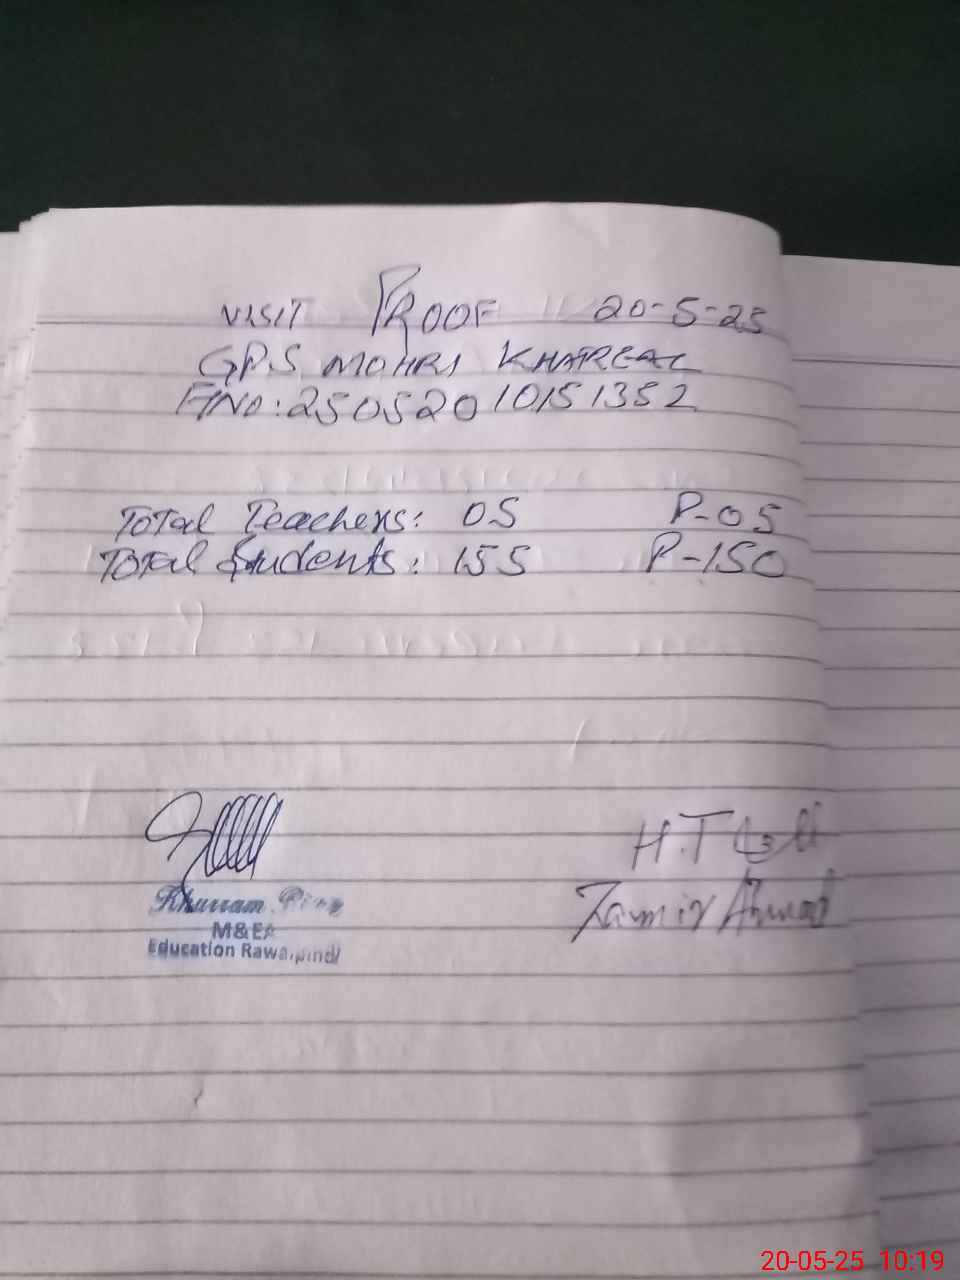 VISIT PROOF 20-5-25
G.P.S MOHRI KHATREAL
FINO: 25052010151352
Total Teachers: 05 P-05
Total Students: 155 P-150
H.T
Khurram
Zamir Ahmad
M&EA
Education Rawalpindi
20-05-25 10:19